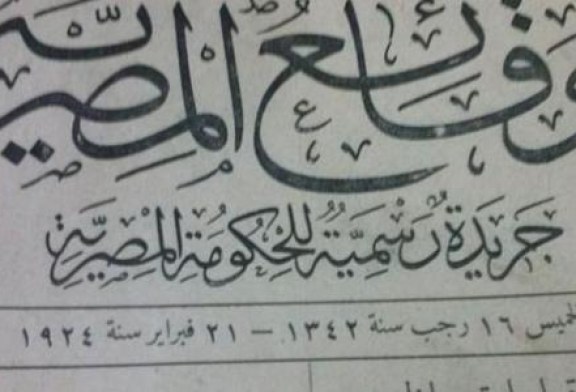 وقائع المصرية
جريدة رسمية للحكومة المصرية
الخميس ١٦ رجب سنة ١٣٤٢ — ٢١ فبراير سنة ١٩٢٤